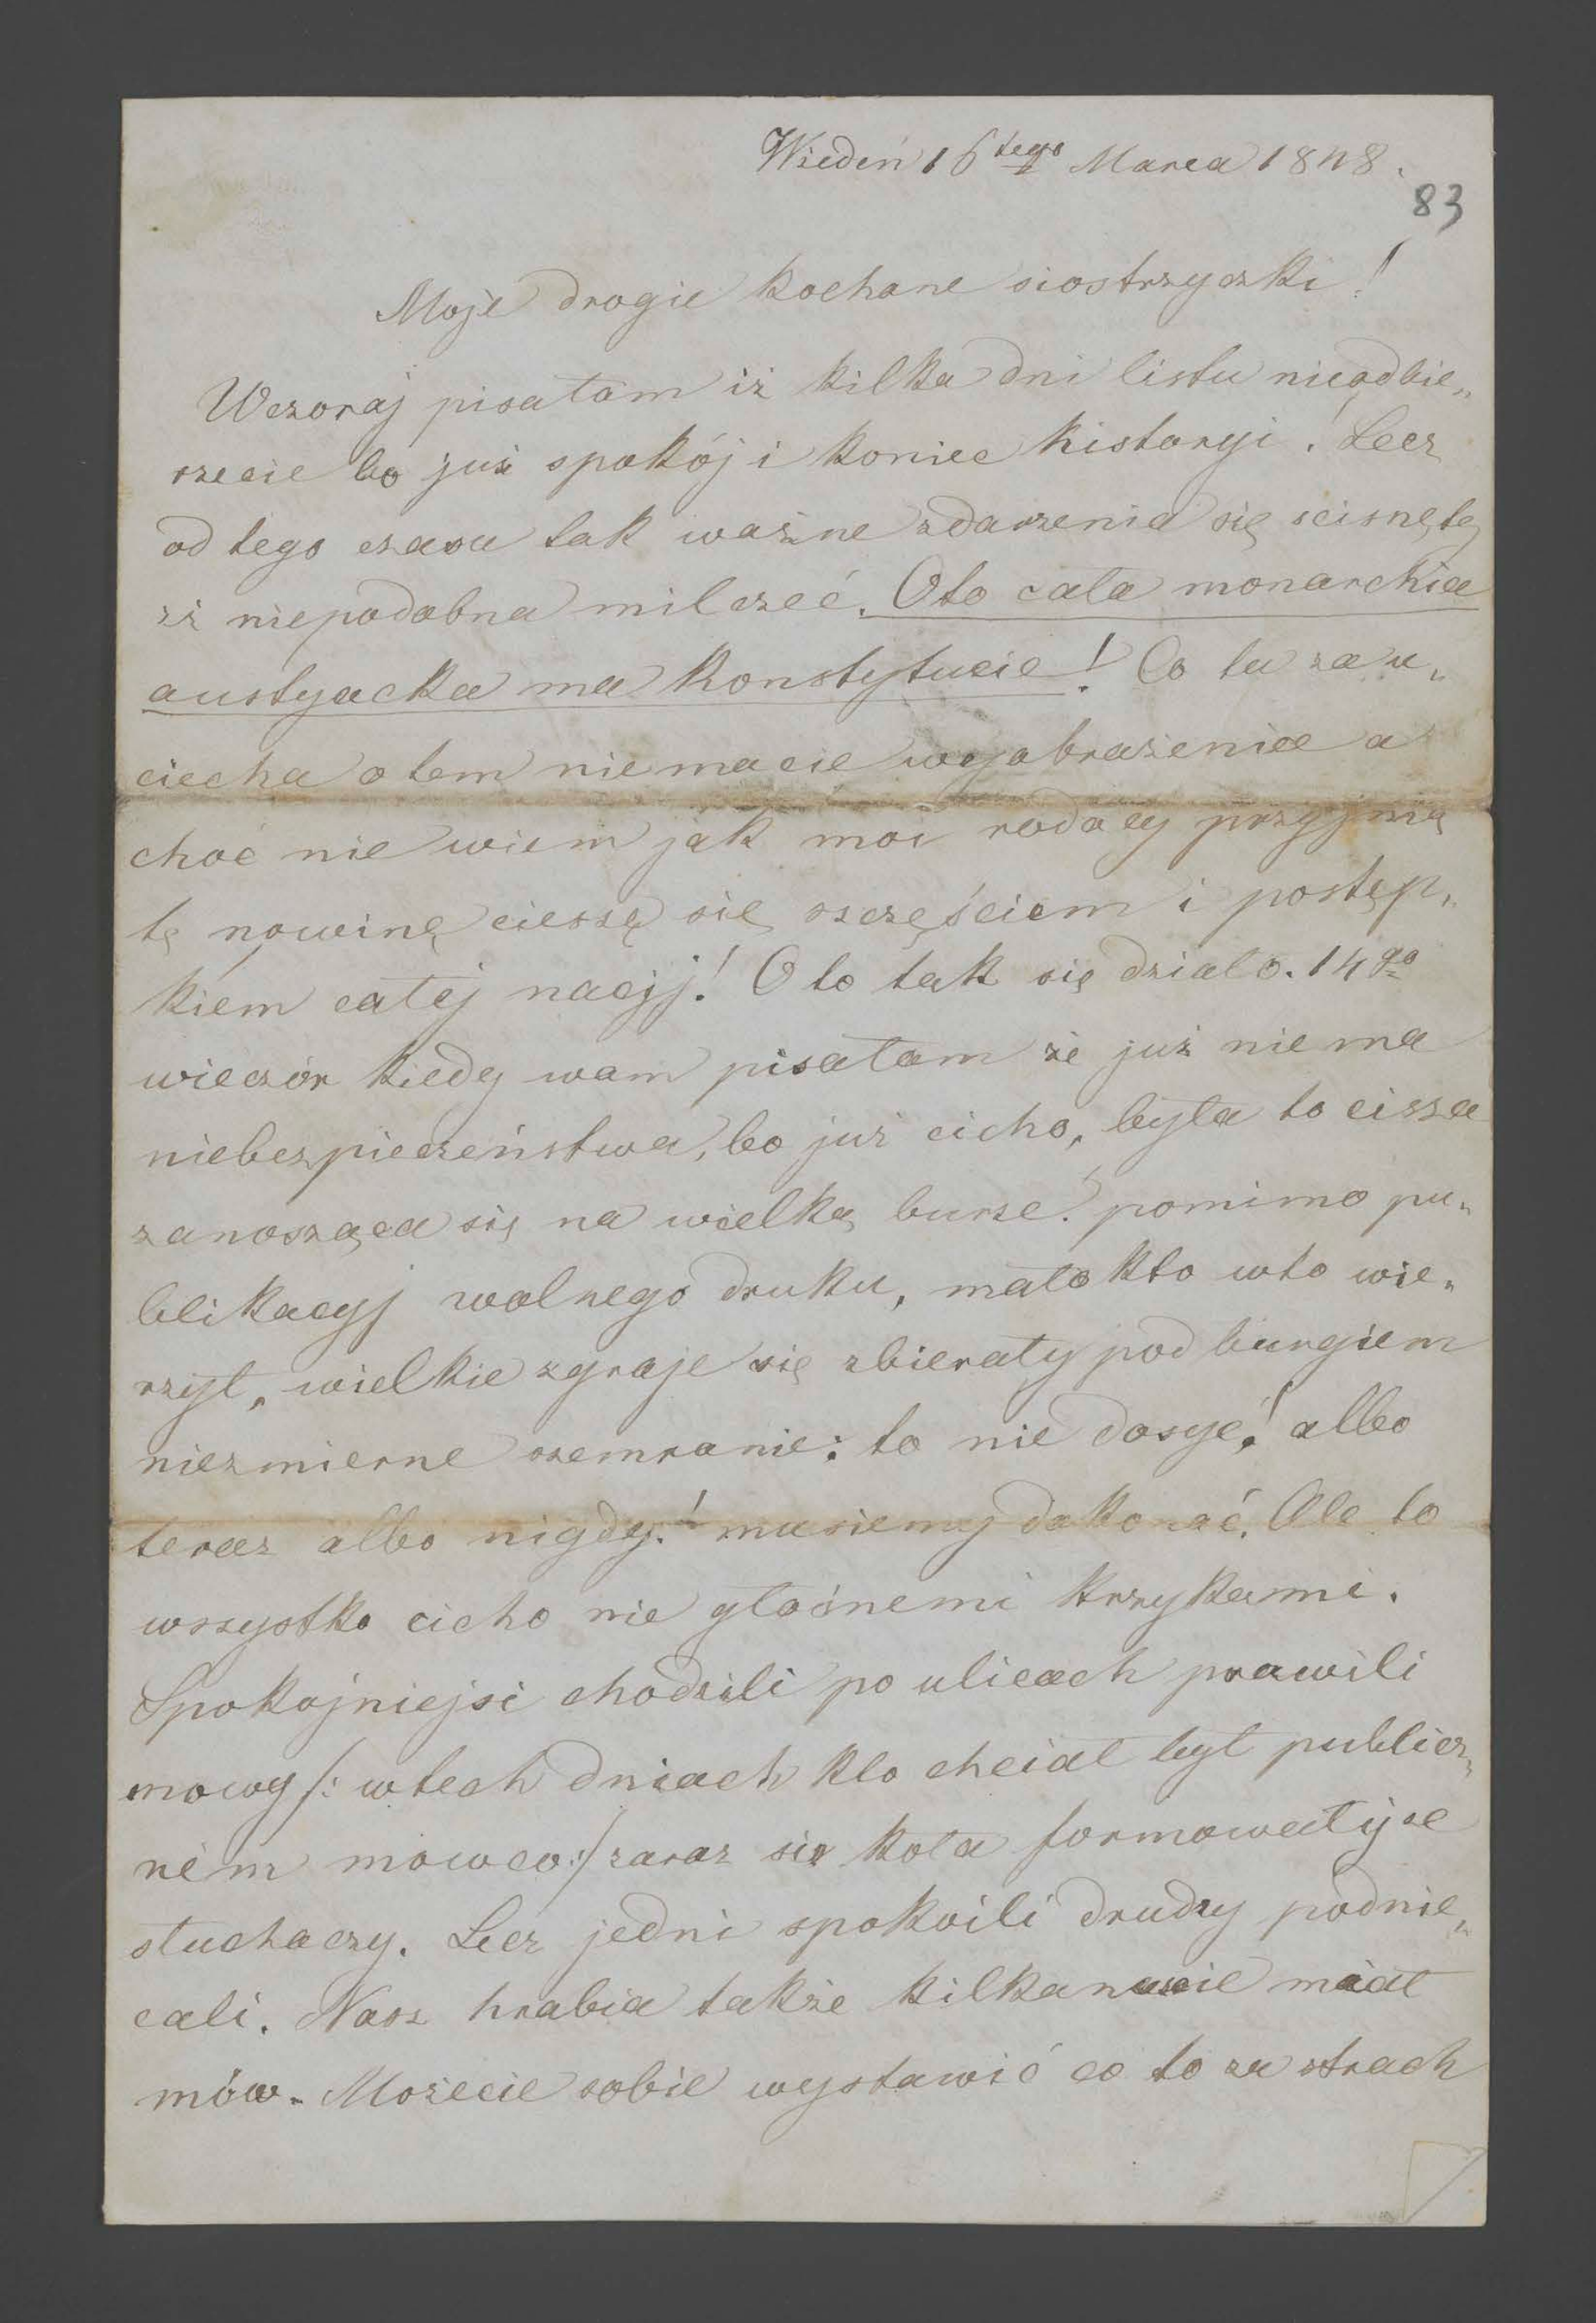 Wiedeń 16tego Marca 1848.
83
Moje drogie kochane siostrzyczki!
Wczoraj pisałam iż kilka dni listu nieodbie„
rzecie bo już spokój i koniec historyi! Lecz
od tego czasu tak ważne zdarzenia się scisnęłe
iż niepodobna milczeć. Oto cała monarchia
austyacka ma Konstytucie! Co tu za u„
ciecha o tem niemacie wyobrażenia a
choć nie wiem jak moi rodacy przyjmą
tę nowinę cieszę się szczęściem i postęp„
kiem całej nacyj! Oto tak się działo. 14go
wieczór kiedy wam pisałam że już niema
niebezpieczeństwa, bo już cicho, była to cisza
zanosząca się na wielką burze! pomimo pu„
blikacyj wolnego druku, mało kto wto wie„
rzył, wielkie zgraje się zbierały pod burgiem
niezmierne szemranie: to nie dosyć! albo
teraz albo nigdy! musiemy dokonać. Ale to
wszystko cicho nie głośnemi krzykami.
Spokojniejsi chodzili po ulicach prawili
mowy /: wtech dniach kto chciał był publicz„
ném mowco :/ zaraz się koła formowały ze
słuchaczy. Lecz jedni spokoili drudzy podnie„
cali. Nasz hrabia także kilkanascie miał
mów. Możecie sobie wystawić co to za strach